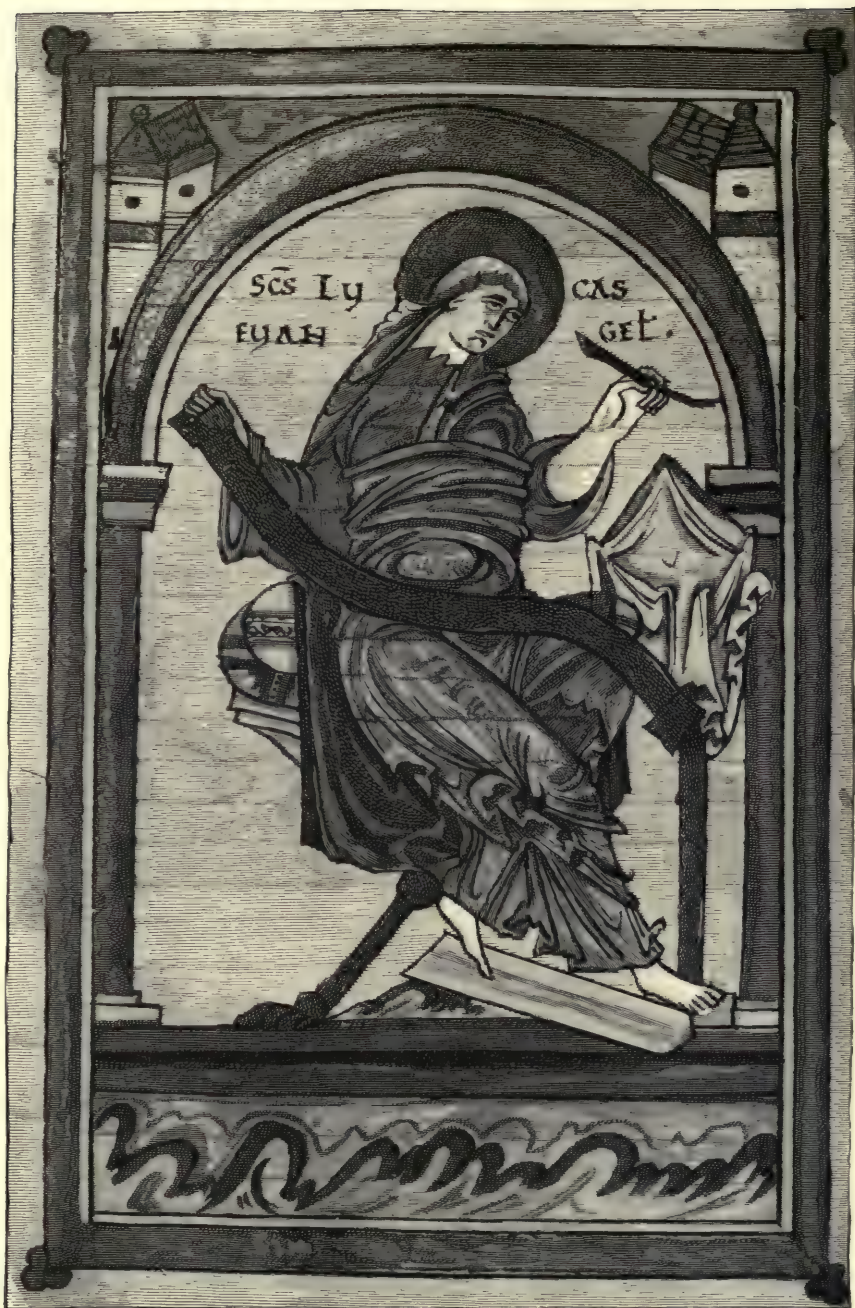 SC̄S LY CAS
EYAN GEL̄.